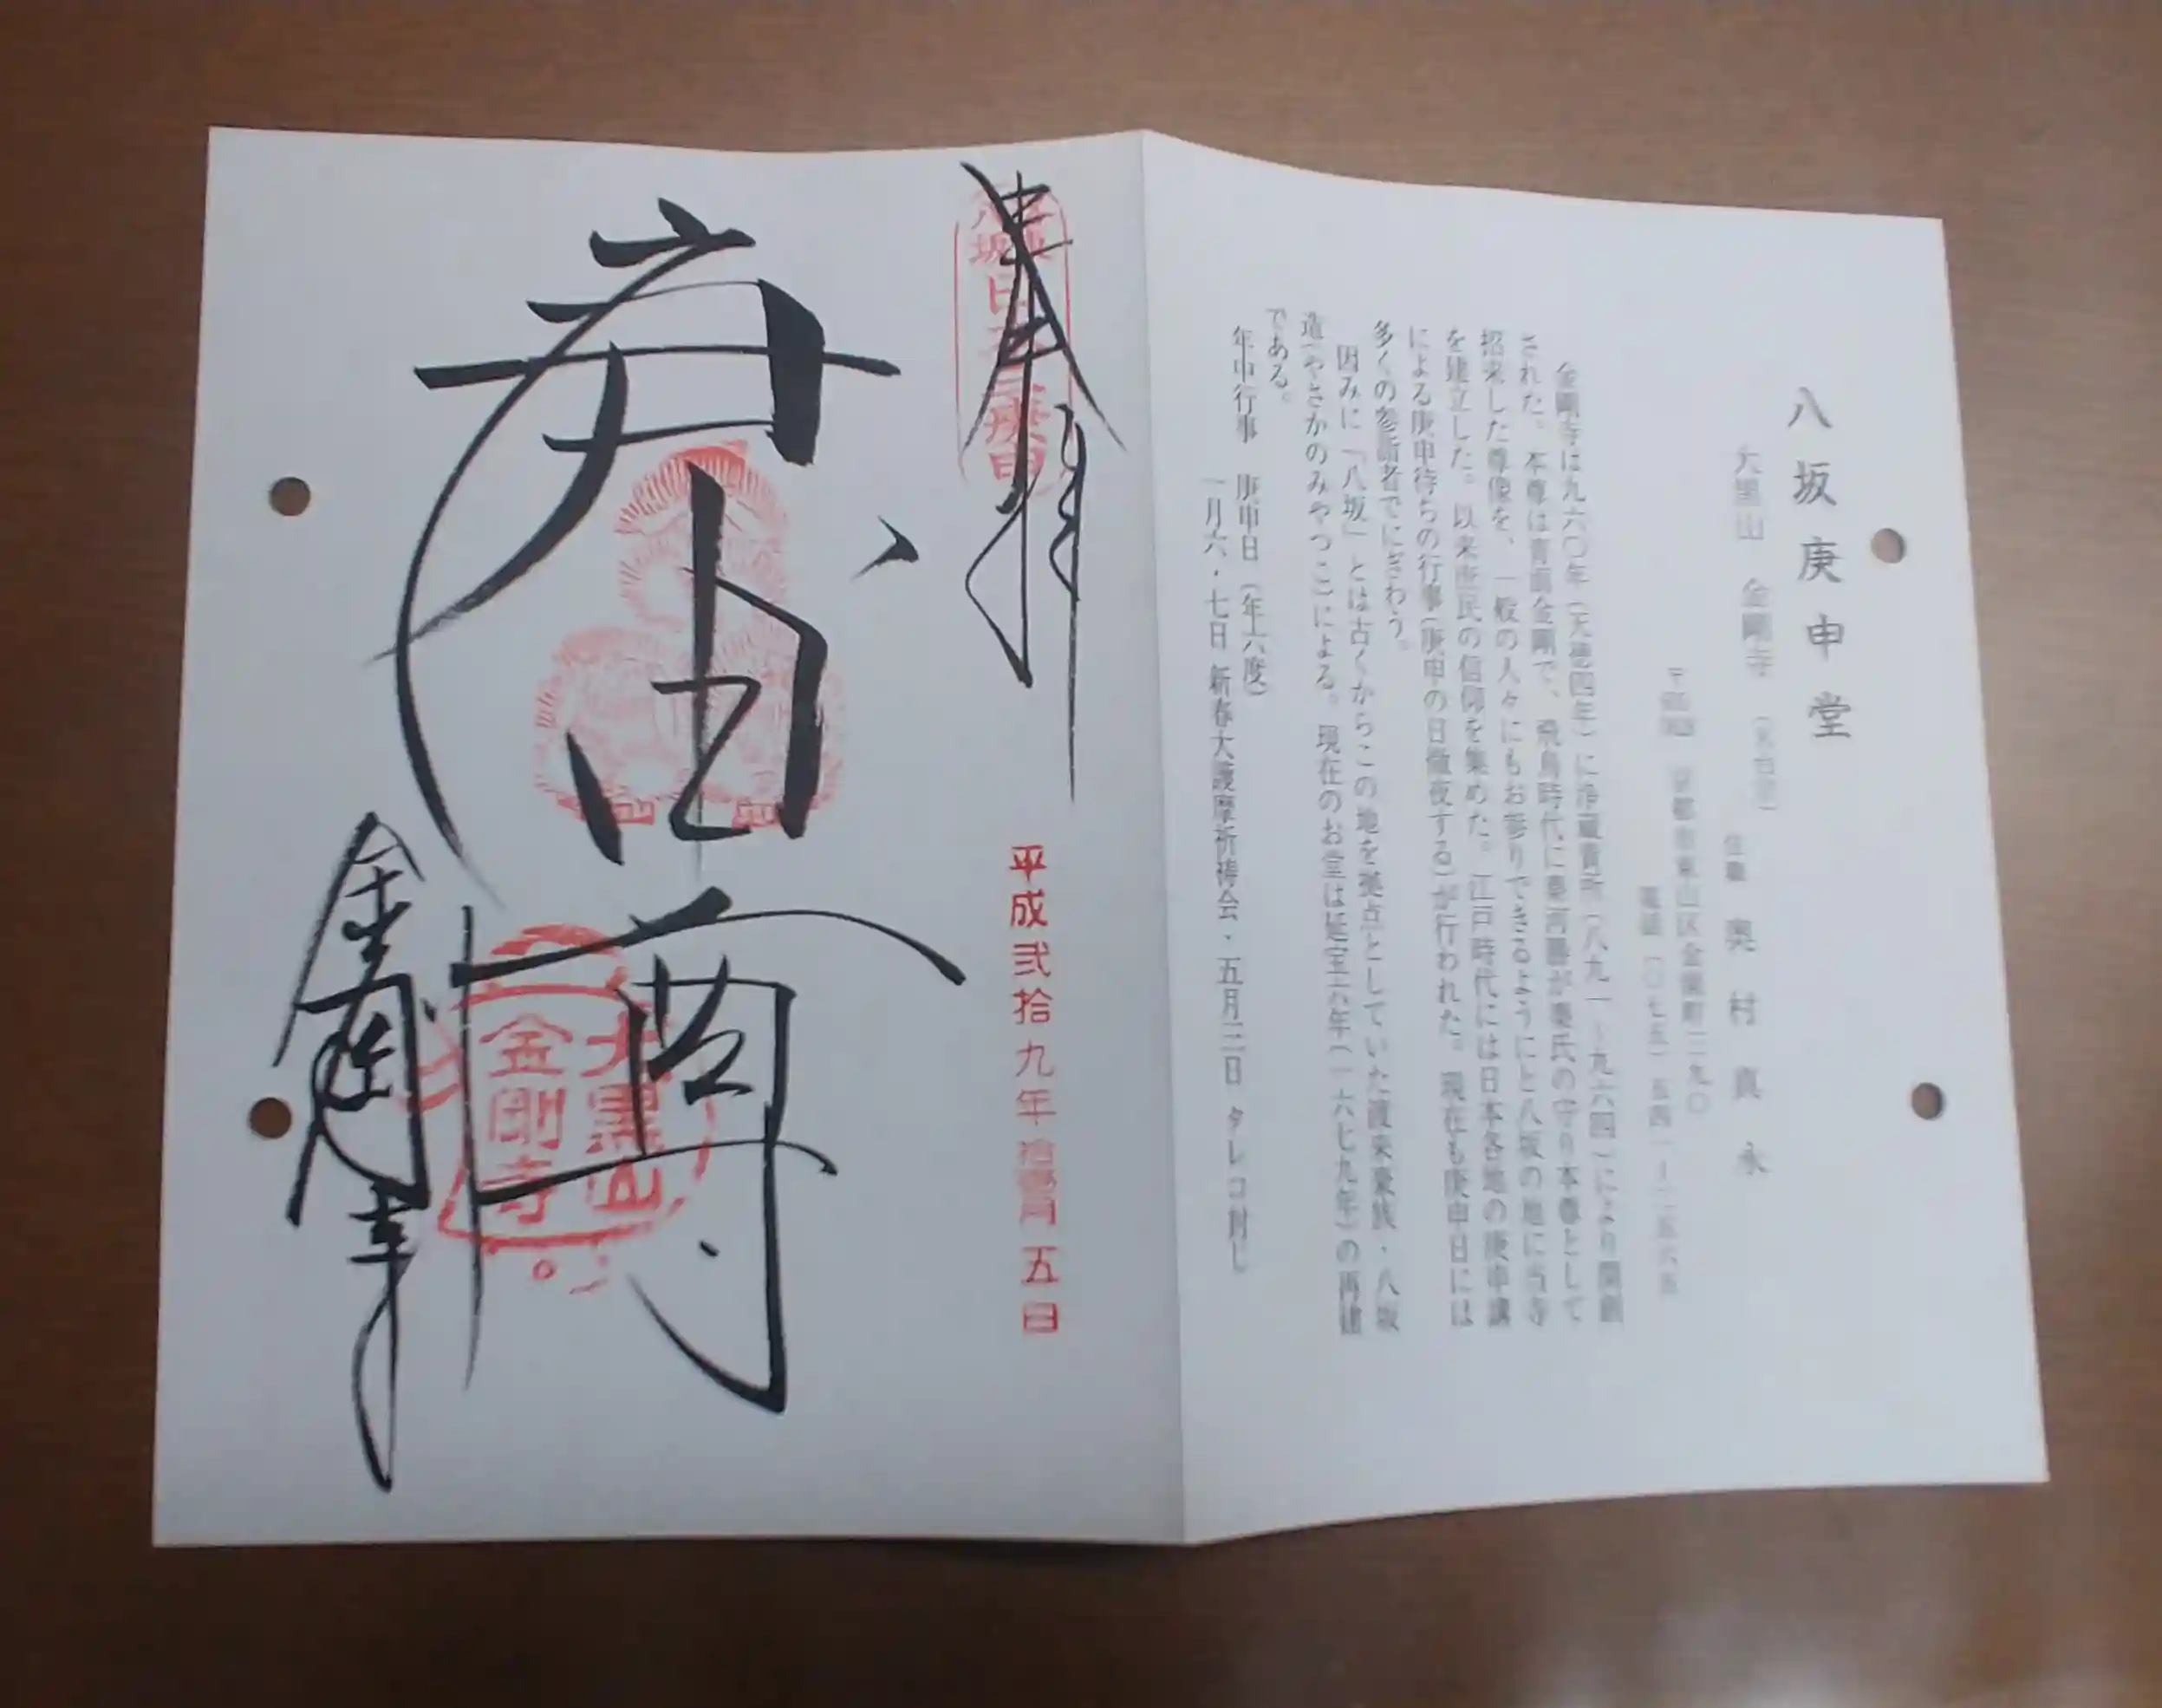 八坂庚申堂
大黒山 金剛寺 (天台宗)
住職 奥村真永
京都市東山区金園町三九〇
電話 (〇七五) 五四一-二五六五
金剛寺は九六〇年(天徳四年)に浄蔵貴所(八九一-九六四)により開創
された。本尊は青面金剛で、飛鳥時代に秦河勝が秦氏の守り本尊として
招来した尊像を、一般の人々にもお参りできるようにと八坂の地に当寺
を建立した。以来庶民の信仰を集めた。江戸時代には日本各地の庚申講
による庚申待ちの行事(庚申の日徹夜する)が行われた。現在も庚申日には
多くの参詣者でにぎわう。
因みに「八坂」とは古くからこの地を拠点としていた渡来豪族・八坂
造(やさかのみやつこ)による。現在のお堂は延宝六年(一六七九年)の再建
である。
年中行事 庚申日(年六度)
一月六・七日 新春大護摩祈祷会・五月三日 タレコ封じ
奉拝
平成弐拾九年拾壱月五日
庚申尊
大黒山
金剛寺
金剛寺